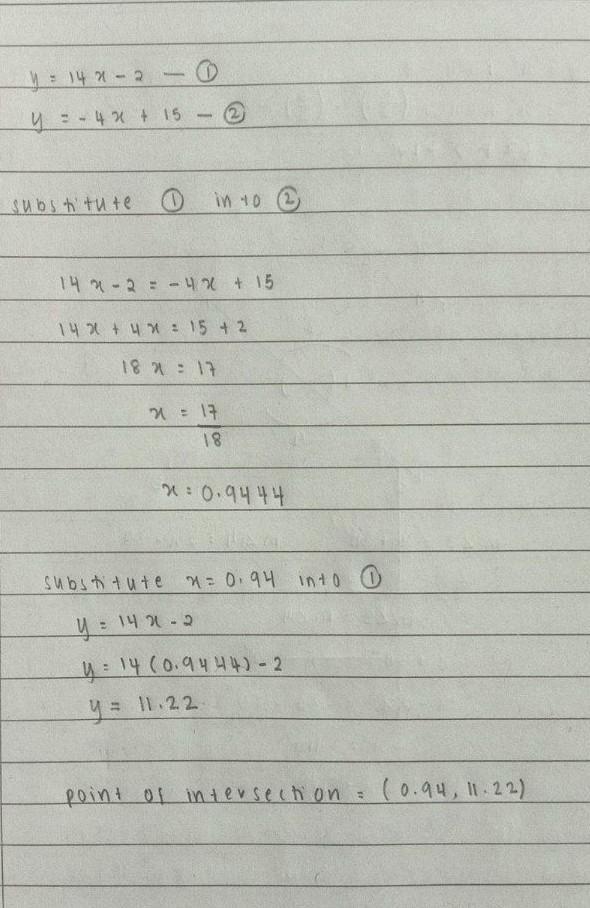 y = 14x - 2 — ①
y = -4x + 15 — ②
substitute ① into ②
14x - 2 = -4x + 15
14x + 4x = 15 + 2
18x = 17
x = 17
18
x = 0.9444
substitute x = 0.94 into ①
y = 14x - 2
y = 14(0.9444) - 2
y = 11.22
point of intersection = (0.94, 11.22)